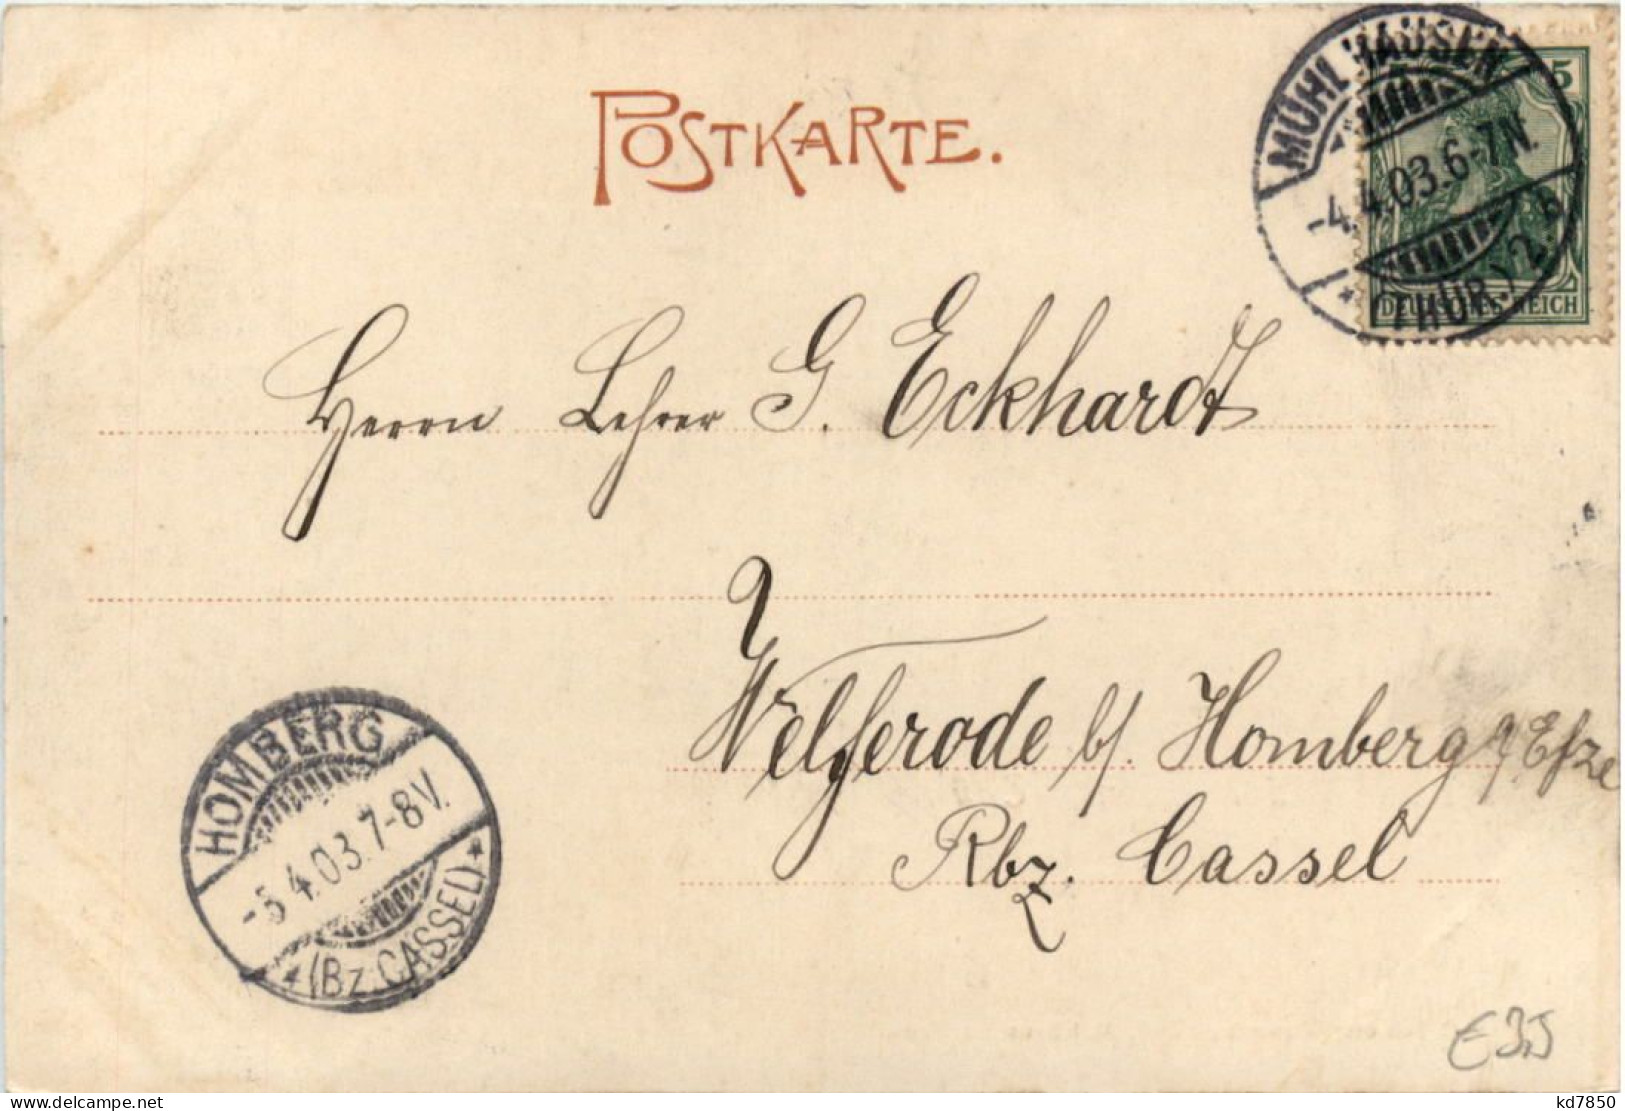 POSTKARTE.
MÜHLHAUSEN
-4.4.03.6-7N.
*(THÜR.) 2. b
5
DEUTSCHES REICH
Herrn Lehrer G. Eckhardt
Welferode b/. Homberg
Efze
Rbz. Cassel
HOMBERG
-5.4.03.7-8V.
*(Bz. CASSEL)*
E35
www.delcampe.net
kd7850